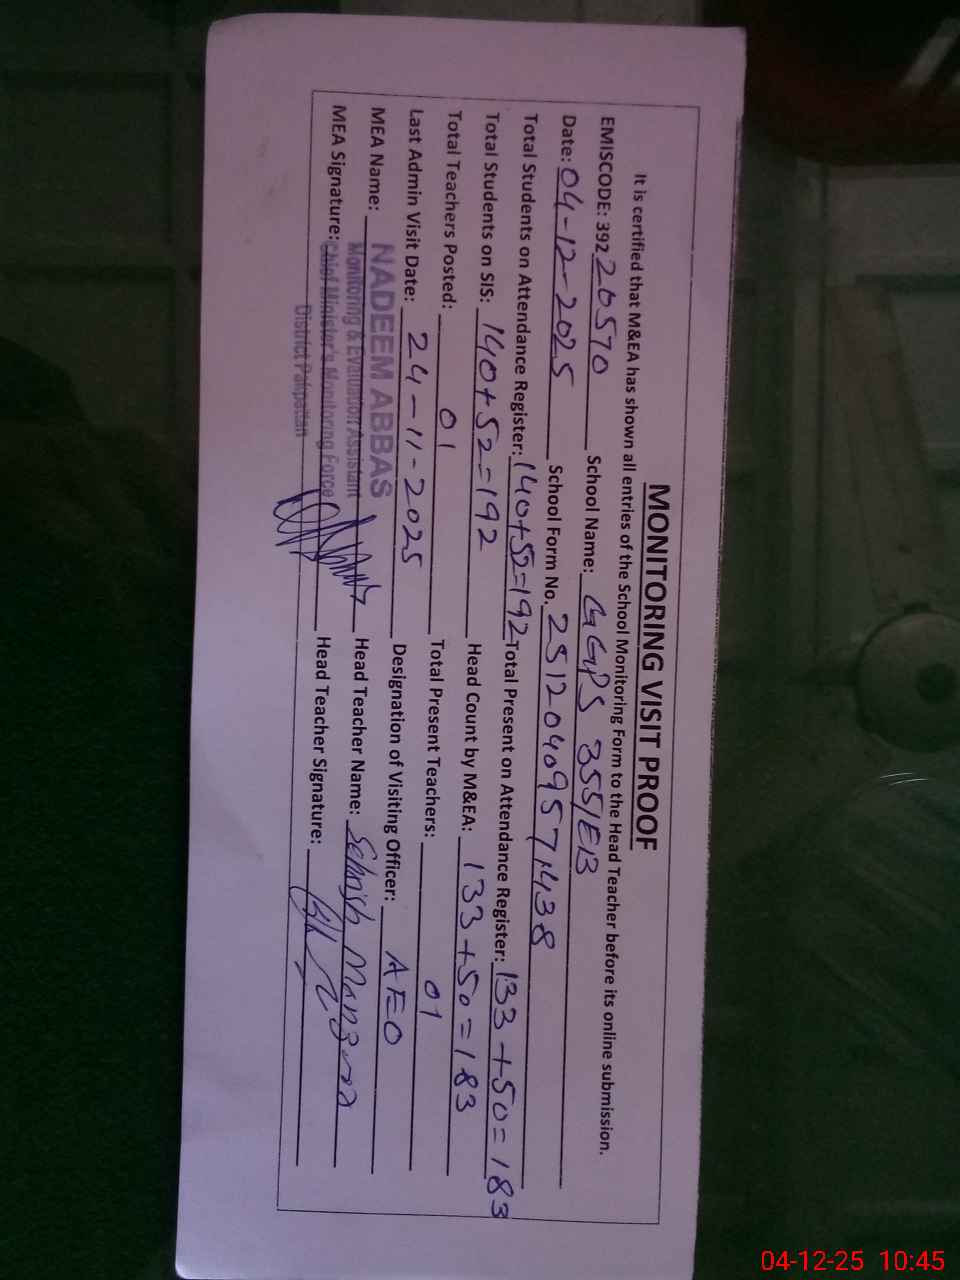 MONITORING VISIT PROOF
It is certified that M&EA has shown all entries of the School Monitoring Form to the Head Teacher before its online submission.
EMISCODE: 39220570 School Name: GGPS 355/EB
Date: 04-12-2025 School Form No. 251204095743​8
Total Students on Attendance Register: 140+52=192 Total Present on Attendance Register: 133+50=183
Total Students on SIS: 140+52=192 Head Count by M&EA: 133+50=183
Total Teachers Posted: 01 Total Present Teachers: 01
Last Admin Visit Date: 24-11-2025 Designation of Visiting Officer: AEO
MEA Name: NADEEM ABBAS Head Teacher Name: Sehrish
Monitoring & Evaluation Assistant
MEA Signature: Chief Minister's Monitoring Force Head Teacher Signature:
District Pakpattan
04-12-25 10:45